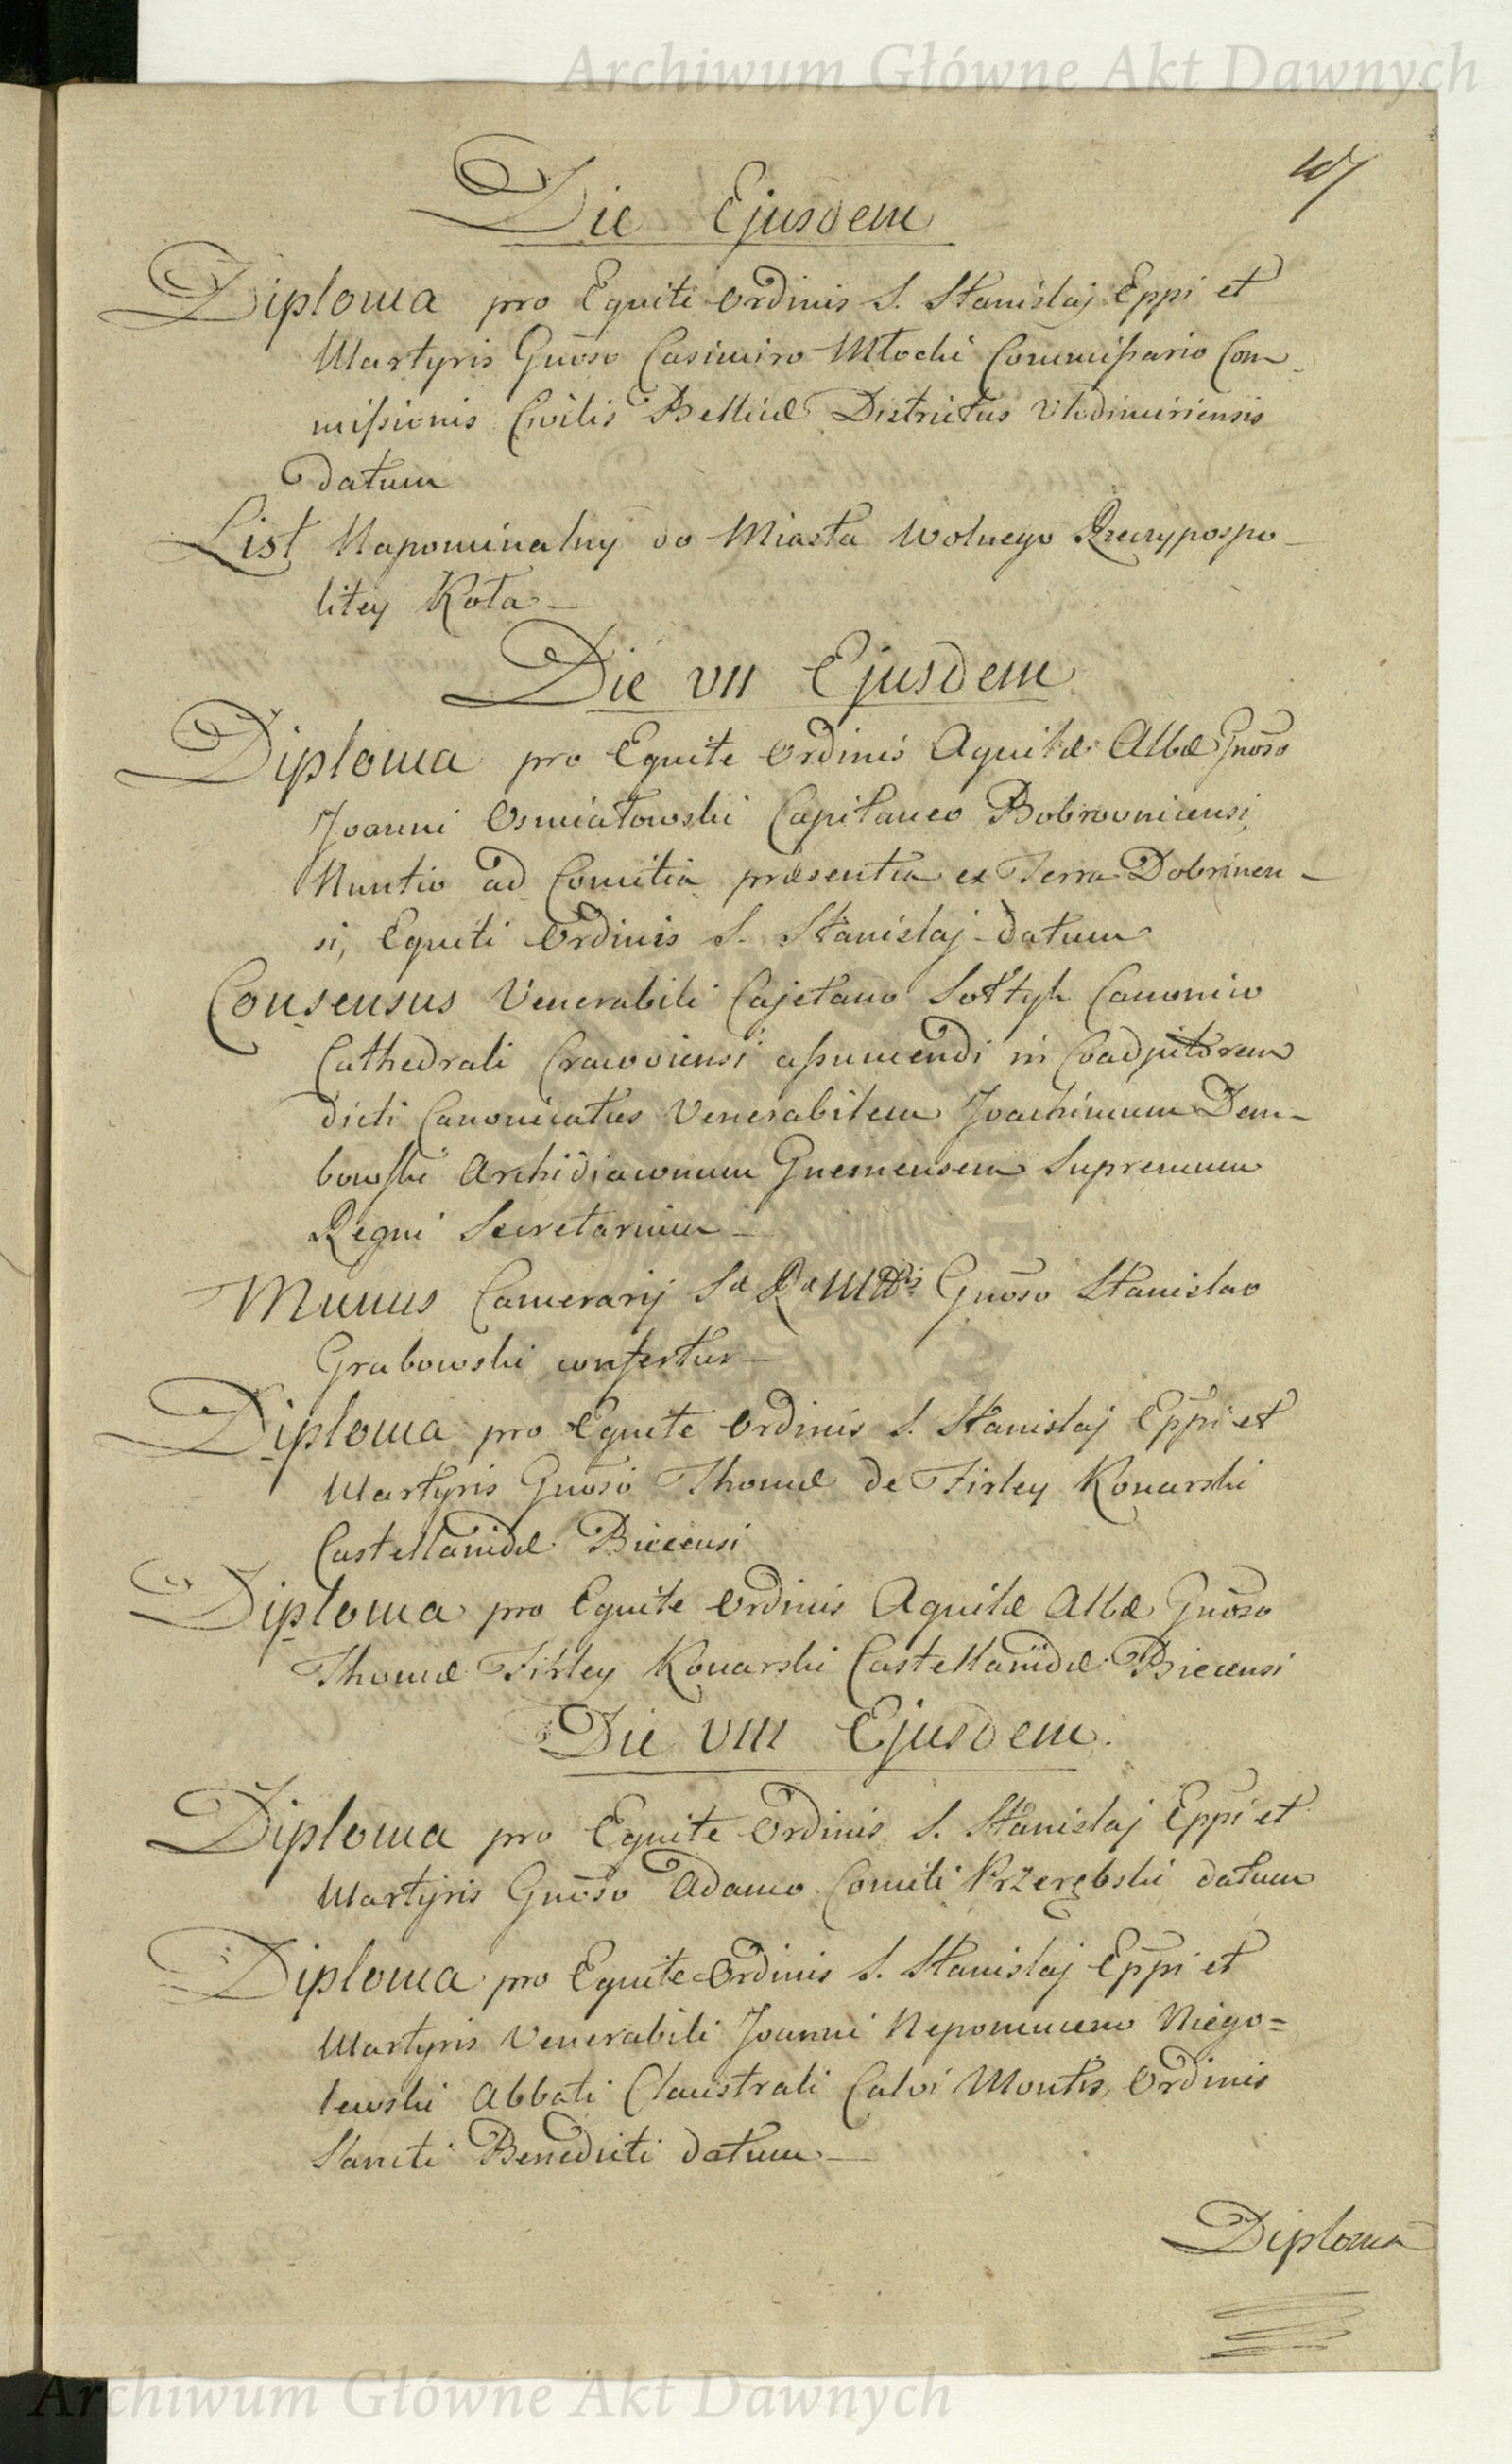 Archiwum Główne Akt Dawnych
Die Ejusdem
Diploma pro Equite Ordinis S. Stanislaj Eppi et
Martyris Gnõso Casimiro Młocki Commissario Com-
missionis Civilis Bellicæ Districtus Vlodimiriensis
datum
List Napominalny do Miasta Wolnego Rzeczypospo-
litey Koła —
Die VII Ejusdem
Diploma pro Equite Ordinis Aquilæ Albæ Gnõso
Joanni Osmiałowski Capitaneo Bobrovnicensi,
Nuntio ad Comitia præsentia ex Terra Dobrinen-
si, Equiti Ordinis S. Stanislaj datum
Consensus Venerabili Cajetano Sołtyk Canonico
Cathedrali Cracoviensi assumendi in Coadjutorem
dicti Canonicatus Venerabilem Joachimum Dem-
bowski Archidiaconum Gnesnensem Supremum
Regni Secretarium —
Munus Camerarij Sæ Ræ Mttis Gnõso Stanislao
Grabowski confertur —
Diploma pro Equite Ordinis S. Stanislaj Eppi et
Martyris Gnõso Thomæ de Firley Konarski
Castellanidæ Biecensi
Diploma pro Equite Ordinis Aquilæ Albæ Gnõso
Thomæ Firley Konarski Castellanidæ Biecensi
Die VIII Ejusdem.
Diploma pro Equite Ordinis S. Stanislaj Eppi et
Martyris Gnõso Adamo Comiti Przerębski datum
Diploma pro Equite Ordinis S. Stanislaj Eppi et
Martyris Venerabili Joanni Nepomuceno Niego=
lewski Abbati Claustrali Calvi Montis, Ordinis
Sancti Benedicti datum —
Diploma
Archiwum Główne Akt Dawnych